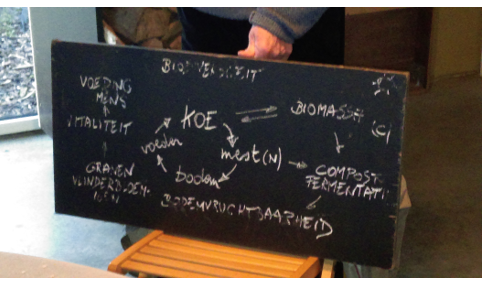 BIODIVERSITEIT
VOEDING
MENS
VITALITEIT
GRANEN
VLINDERBLOEM-
KOE
BIOMASSA
(C)
voeder
mest(N)
bodem
COMPOST
FERMENTATIE
BODEMVRUCHTBAARHEID